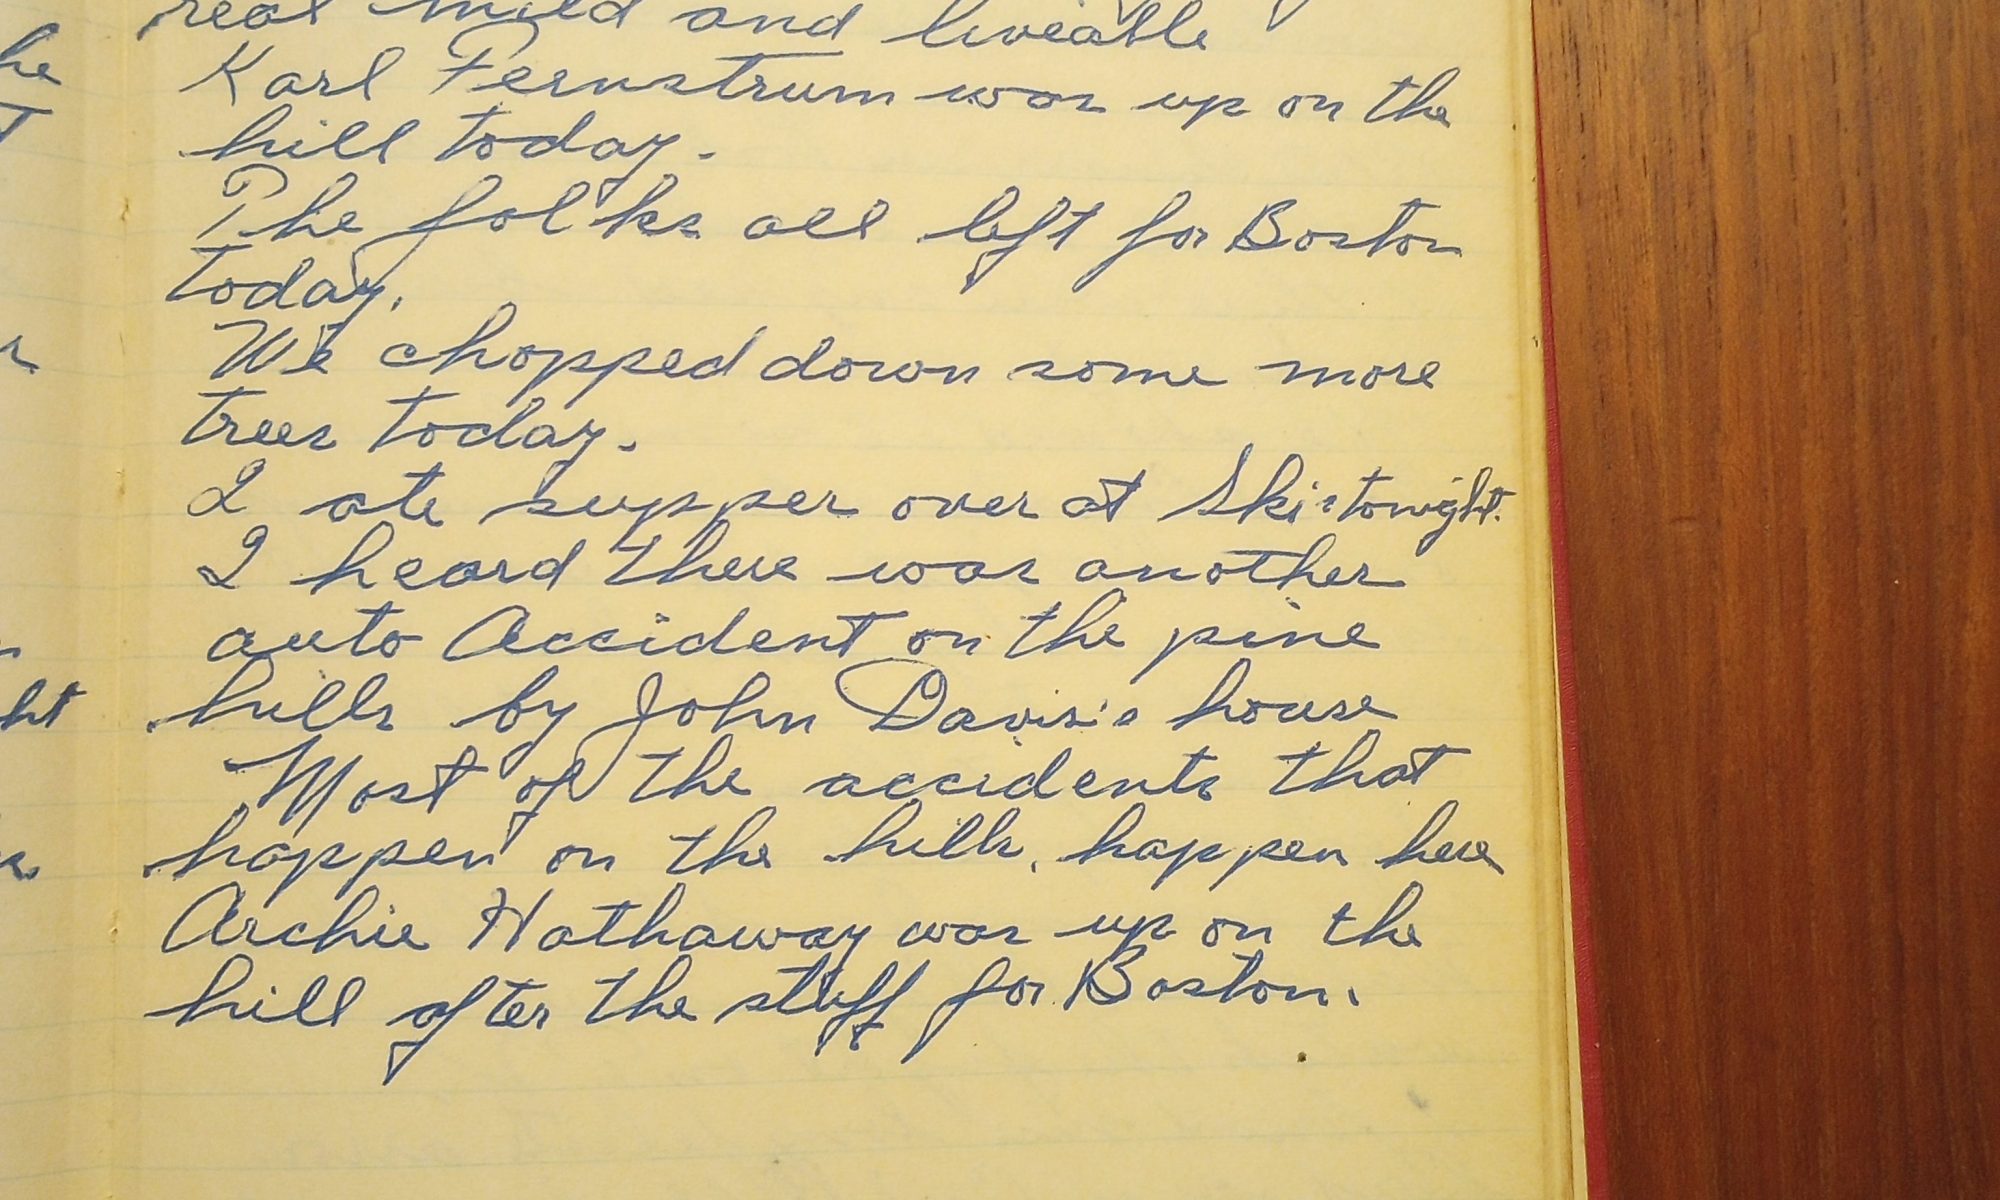 real mild and liveable
Karl Fernstrum was up on the
hill today.
The folks all left for Boston
today.
We chopped down some more
trees today.
I ate supper over at Ski's tonight.
I heard there was another
auto Accident on the pine
hills by John Davis's house
Most of the accidents that
happen on the hills, happen here
Archie Hathaway was up on the
hill after the stuff for Boston.